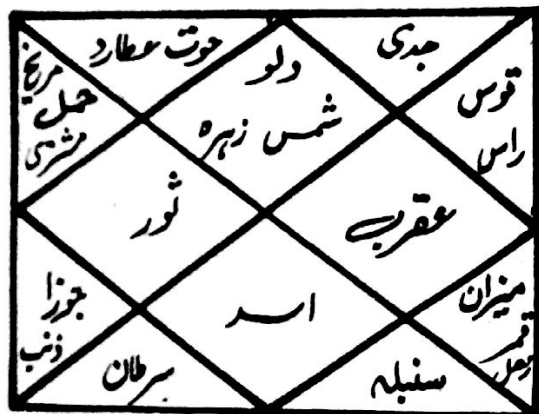 حوت عطارد
دلو
شمس زہرہ
جدی
مریخ
حمل
مشتری
قوس
راس
ثور
عقرب
جوزا
ذنب
اسد
میزان
قمر
زحل
سرطان
سنبلہ